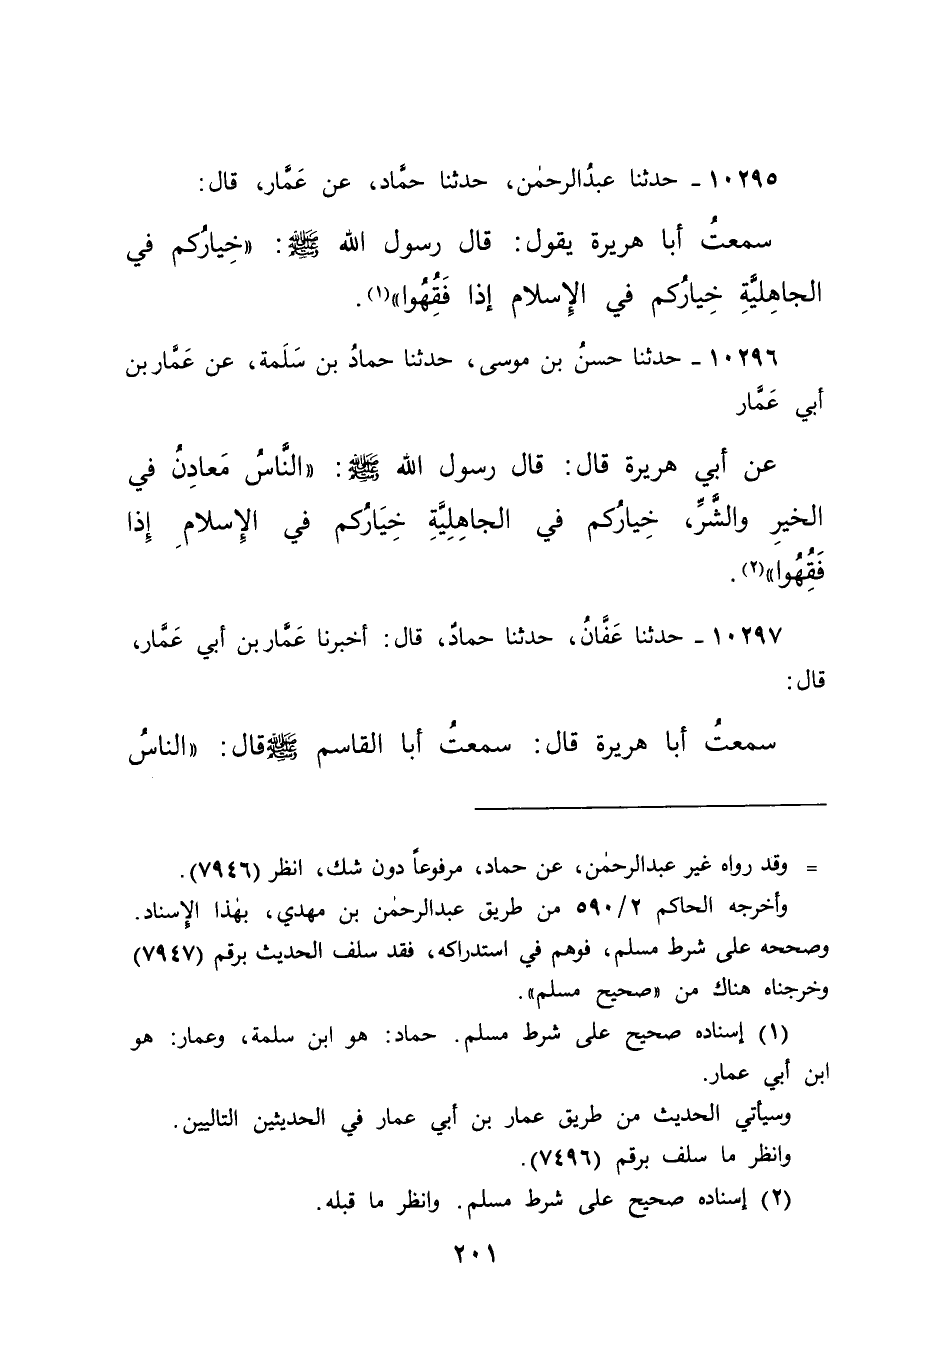 ١٠٢٩٥ - حدثنا عبدُالرحمٰن، حدثنا حمَّاد، عن عَمَّار، قال:
سمعتُ أبا هريرة يقول: قال رسول الله ﷺ: «خِيارُكم في
الجاهِليَّةِ خِيارُكم في الإِسلام إذا فَقُهُوا»(١).
١٠٢٩٦ - حدثنا حسنُ بن موسى، حدثنا حمادُ بن سَلَمة، عن عَمَّار بن
أبي عَمَّار
عن أبي هريرة قال: قال رسول الله ﷺ: «النَّاسُ مَعادِنُ في
الخيرِ والشَّرِّ، خِيارُكم في الجاهِلِيَّةِ خِيَارُكم في الإِسلامِ إِذا
فَقِهُوا»(٢).
١٠٢٩٧ - حدثنا عَفَّانُ، حدثنا حمادٌ، قال: أخبرنا عَمَّار بن أبي عَمَّار،
قال:
سمعتُ أبا هريرة قال: سمعتُ أبا القاسم ﷺ قال: «الناسُ
= وقد رواه غير عبدالرحمٰن، عن حماد، مرفوعاً دون شك، انظر (٧٩٤٦).
وأخرجه الحاكم ٥٩٠/٢ من طريق عبدالرحمٰن بن مهدي، بهٰذا الإسناد.
وصححه على شرط مسلم، فوهم في استدراكه، فقد سلف الحديث برقم (٧٩٤٧)
وخرجناه هناك من «صحيح مسلم».
(١) إسناده صحيح على شرط مسلم. حماد: هو ابن سلمة، وعمار: هو
ابن أبي عمار.
وسيأتي الحديث من طريق عمار بن أبي عمار في الحديثين التاليين.
وانظر ما سلف برقم (٧٤٩٦).
(٢) إسناده صحيح على شرط مسلم. وانظر ما قبله.
٢٠١